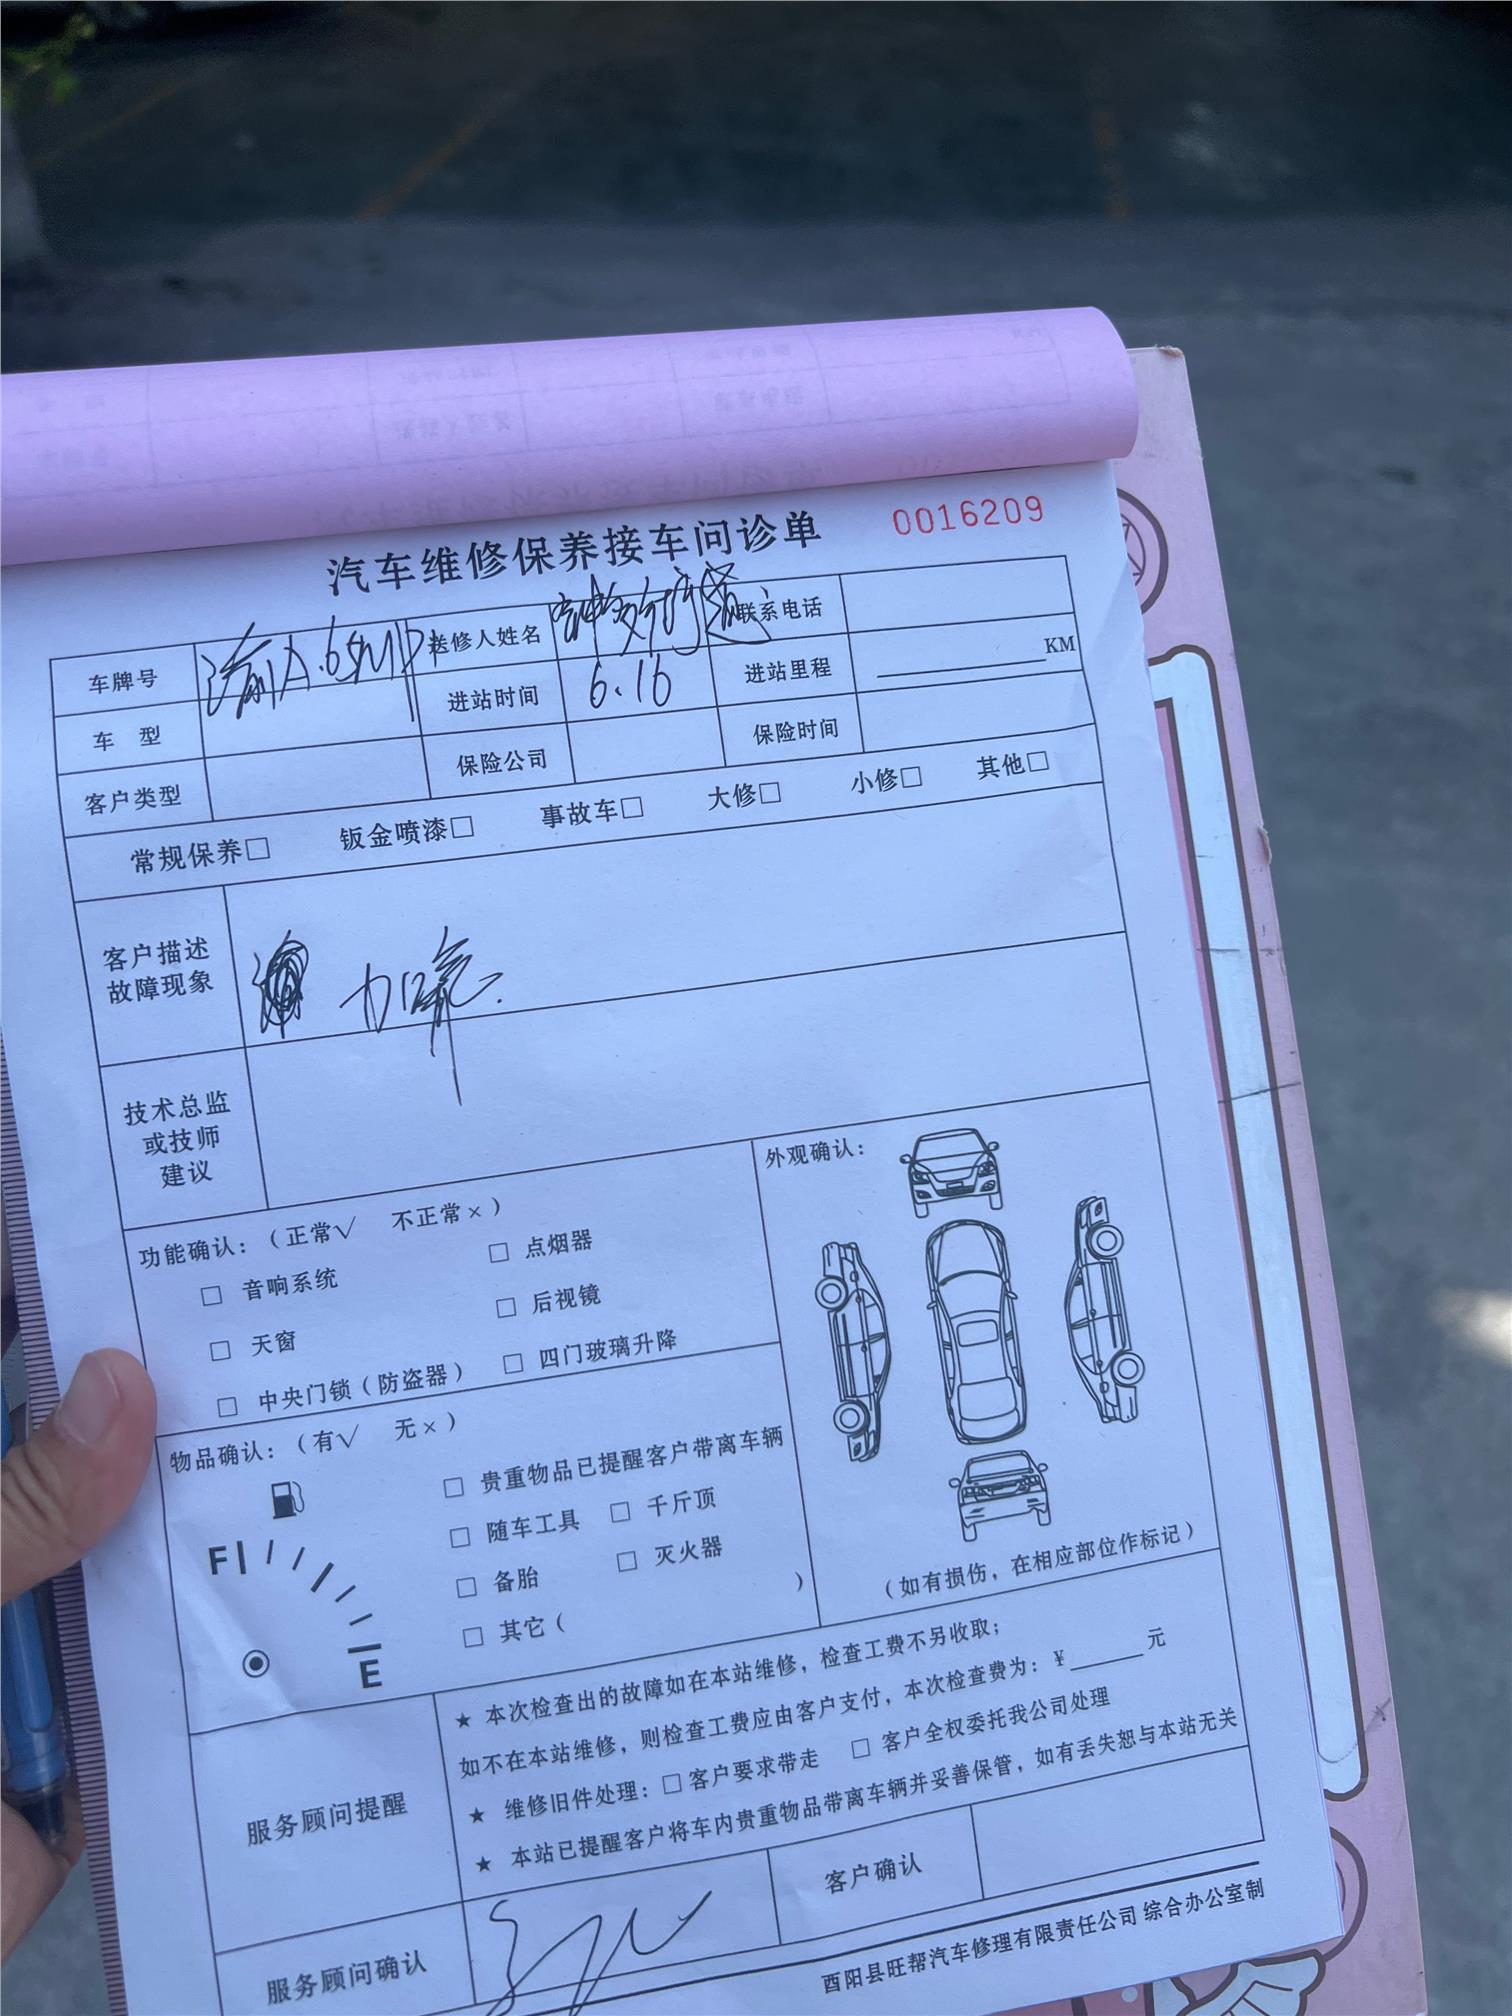 汽车维修保养接车问诊单
0016209
车牌号 送修人姓名 联系电话
车 型 进站时间 6.16 进站里程 KM
客户类型 保险公司 保险时间
常规保养□ 钣金喷漆□ 事故车□ 大修□ 小修□ 其他□
客户描述
故障现象
技术总监
或技师
建议
功能确认：（正常√ 不正常×）
□ 音响系统 □ 点烟器
□ 天窗 □ 后视镜
□ 中央门锁（防盗器） □ 四门玻璃升降
外观确认：
（如有损伤，在相应部位作标记）
物品确认：（有√ 无×）
□ 贵重物品已提醒客户带离车辆
□ 随车工具 □ 千斤顶
□ 备胎 □ 灭火器
□ 其它（ ）
F
E
服务顾问提醒
★ 本次检查出的故障如在本站维修，检查工费不另收取；
如不在本站维修，则检查工费应由客户支付，本次检查费为：¥______元
★ 维修旧件处理：□客户要求带走 □ 客户全权委托我公司处理
★ 本站已提醒客户将车内贵重物品带离车辆并妥善保管，如有丢失恕与本站无关
服务顾问确认 客户确认
酉阳县旺帮汽车修理有限责任公司 综合办公室制